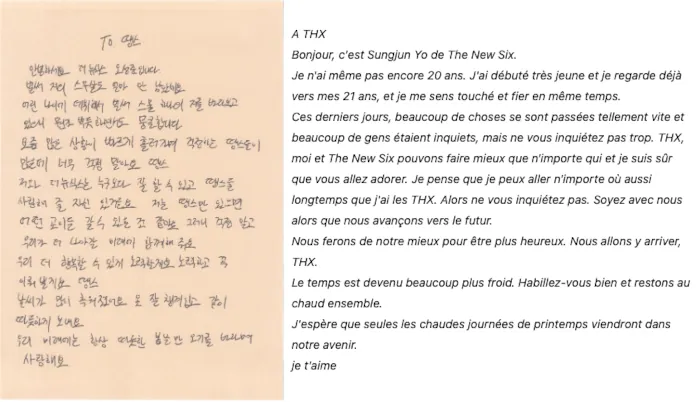 To 땡쓰
안녕하세요 더뉴식스 오성준입니다
벌써 저의 스무살도 얼마 안 남았네요
어린 나이에 데뷔해서 벌써 스물 하나의 저를 바라보고
있으니 뭔가 뿌듯하면서도 뭉클합니다
요즘 많은 상황이 빠르게 흘러가며 걱정하는 땡스들이
많은데 너무 걱정 말아요 땡스
저와 더뉴식스는 누구보다 잘 할 수 있고 땡스를
사랑해 줄 자신 있거든요 저는 땡스만 있으면
어떤 곳이든 갈 수 있을 것 같아요 그러니 걱정 말고
우리가 더 나아갈 미래에 함께해 줘요
우리 더 행복할 수 있게 노력할게요 노력하고 꼭
이뤄낼게요 땡스
날씨가 많이 추워졌어요 옷 잘 챙겨입고 같이
따뜻하게 보내요
우리 미래에는 항상 따뜻한 봄날만 오기를 바라며
사랑해요
A THX
Bonjour, c'est Sungjun Yo de The New Six.
Je n'ai même pas encore 20 ans. J'ai débuté très jeune et je regarde déjà
vers mes 21 ans, et je me sens touché et fier en même temps.
Ces derniers jours, beaucoup de choses se sont passées tellement vite et
beaucoup de gens étaient inquiets, mais ne vous inquiétez pas trop. THX,
moi et The New Six pouvons faire mieux que n'importe qui et je suis sûr
que vous allez adorer. Je pense que je peux aller n'importe où aussi
longtemps que j'ai les THX. Alors ne vous inquiétez pas. Soyez avec nous
alors que nous avançons vers le futur.
Nous ferons de notre mieux pour être plus heureux. Nous allons y arriver,
THX.
Le temps est devenu beaucoup plus froid. Habillez-vous bien et restons au
chaud ensemble.
J'espère que seules les chaudes journées de printemps viendront dans
notre avenir.
je t'aime